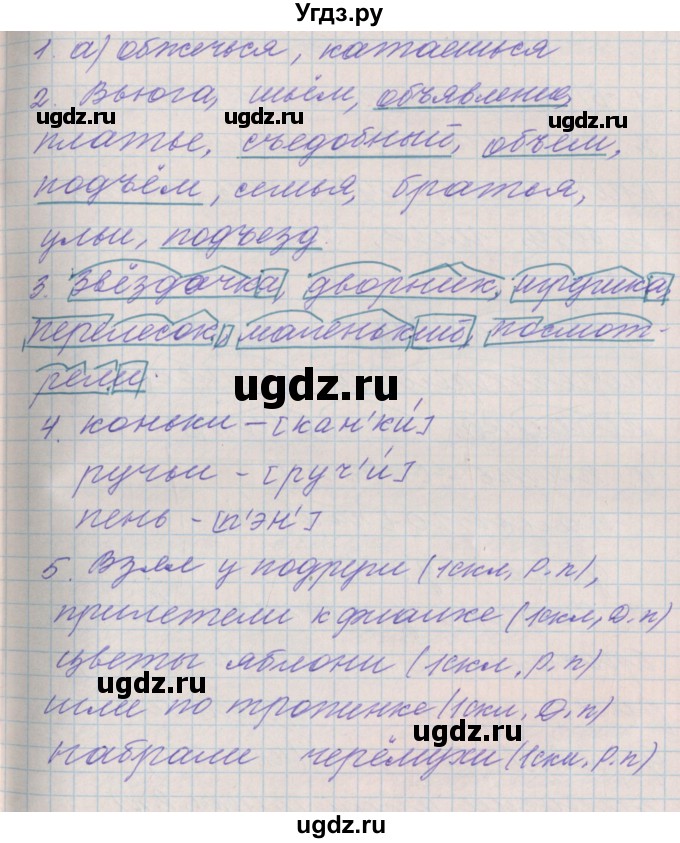 Угдз.ру
1. а) обжечься, катаешься
2. Вьюга, шьём, объявление,
платье, съедобный, объём,
подъём, семья, братья,
улыи, подъезд.
3. Звёздочка, дворник, мушка,
перелесок, маленький, посмот-
рели.
4. коньки – [кан'к'и]
ручьи – [руч'й]
пень – [п'эн']
5. Взял у подруги (1скл, Р.п),
прилетели к фиалке (1скл, Д.п)
цветы яблони (1скл, Р.п)
шли по тропинке (1скл, Д.п)
набрали черёмухи (1скл, Р.п)
ugdz.ru
ugdz.ru
ugdz.ru
ugdz.ru
ugdz.ru
ugdz.ru
ugdz.ru
ugdz.ru
ugdz.ru